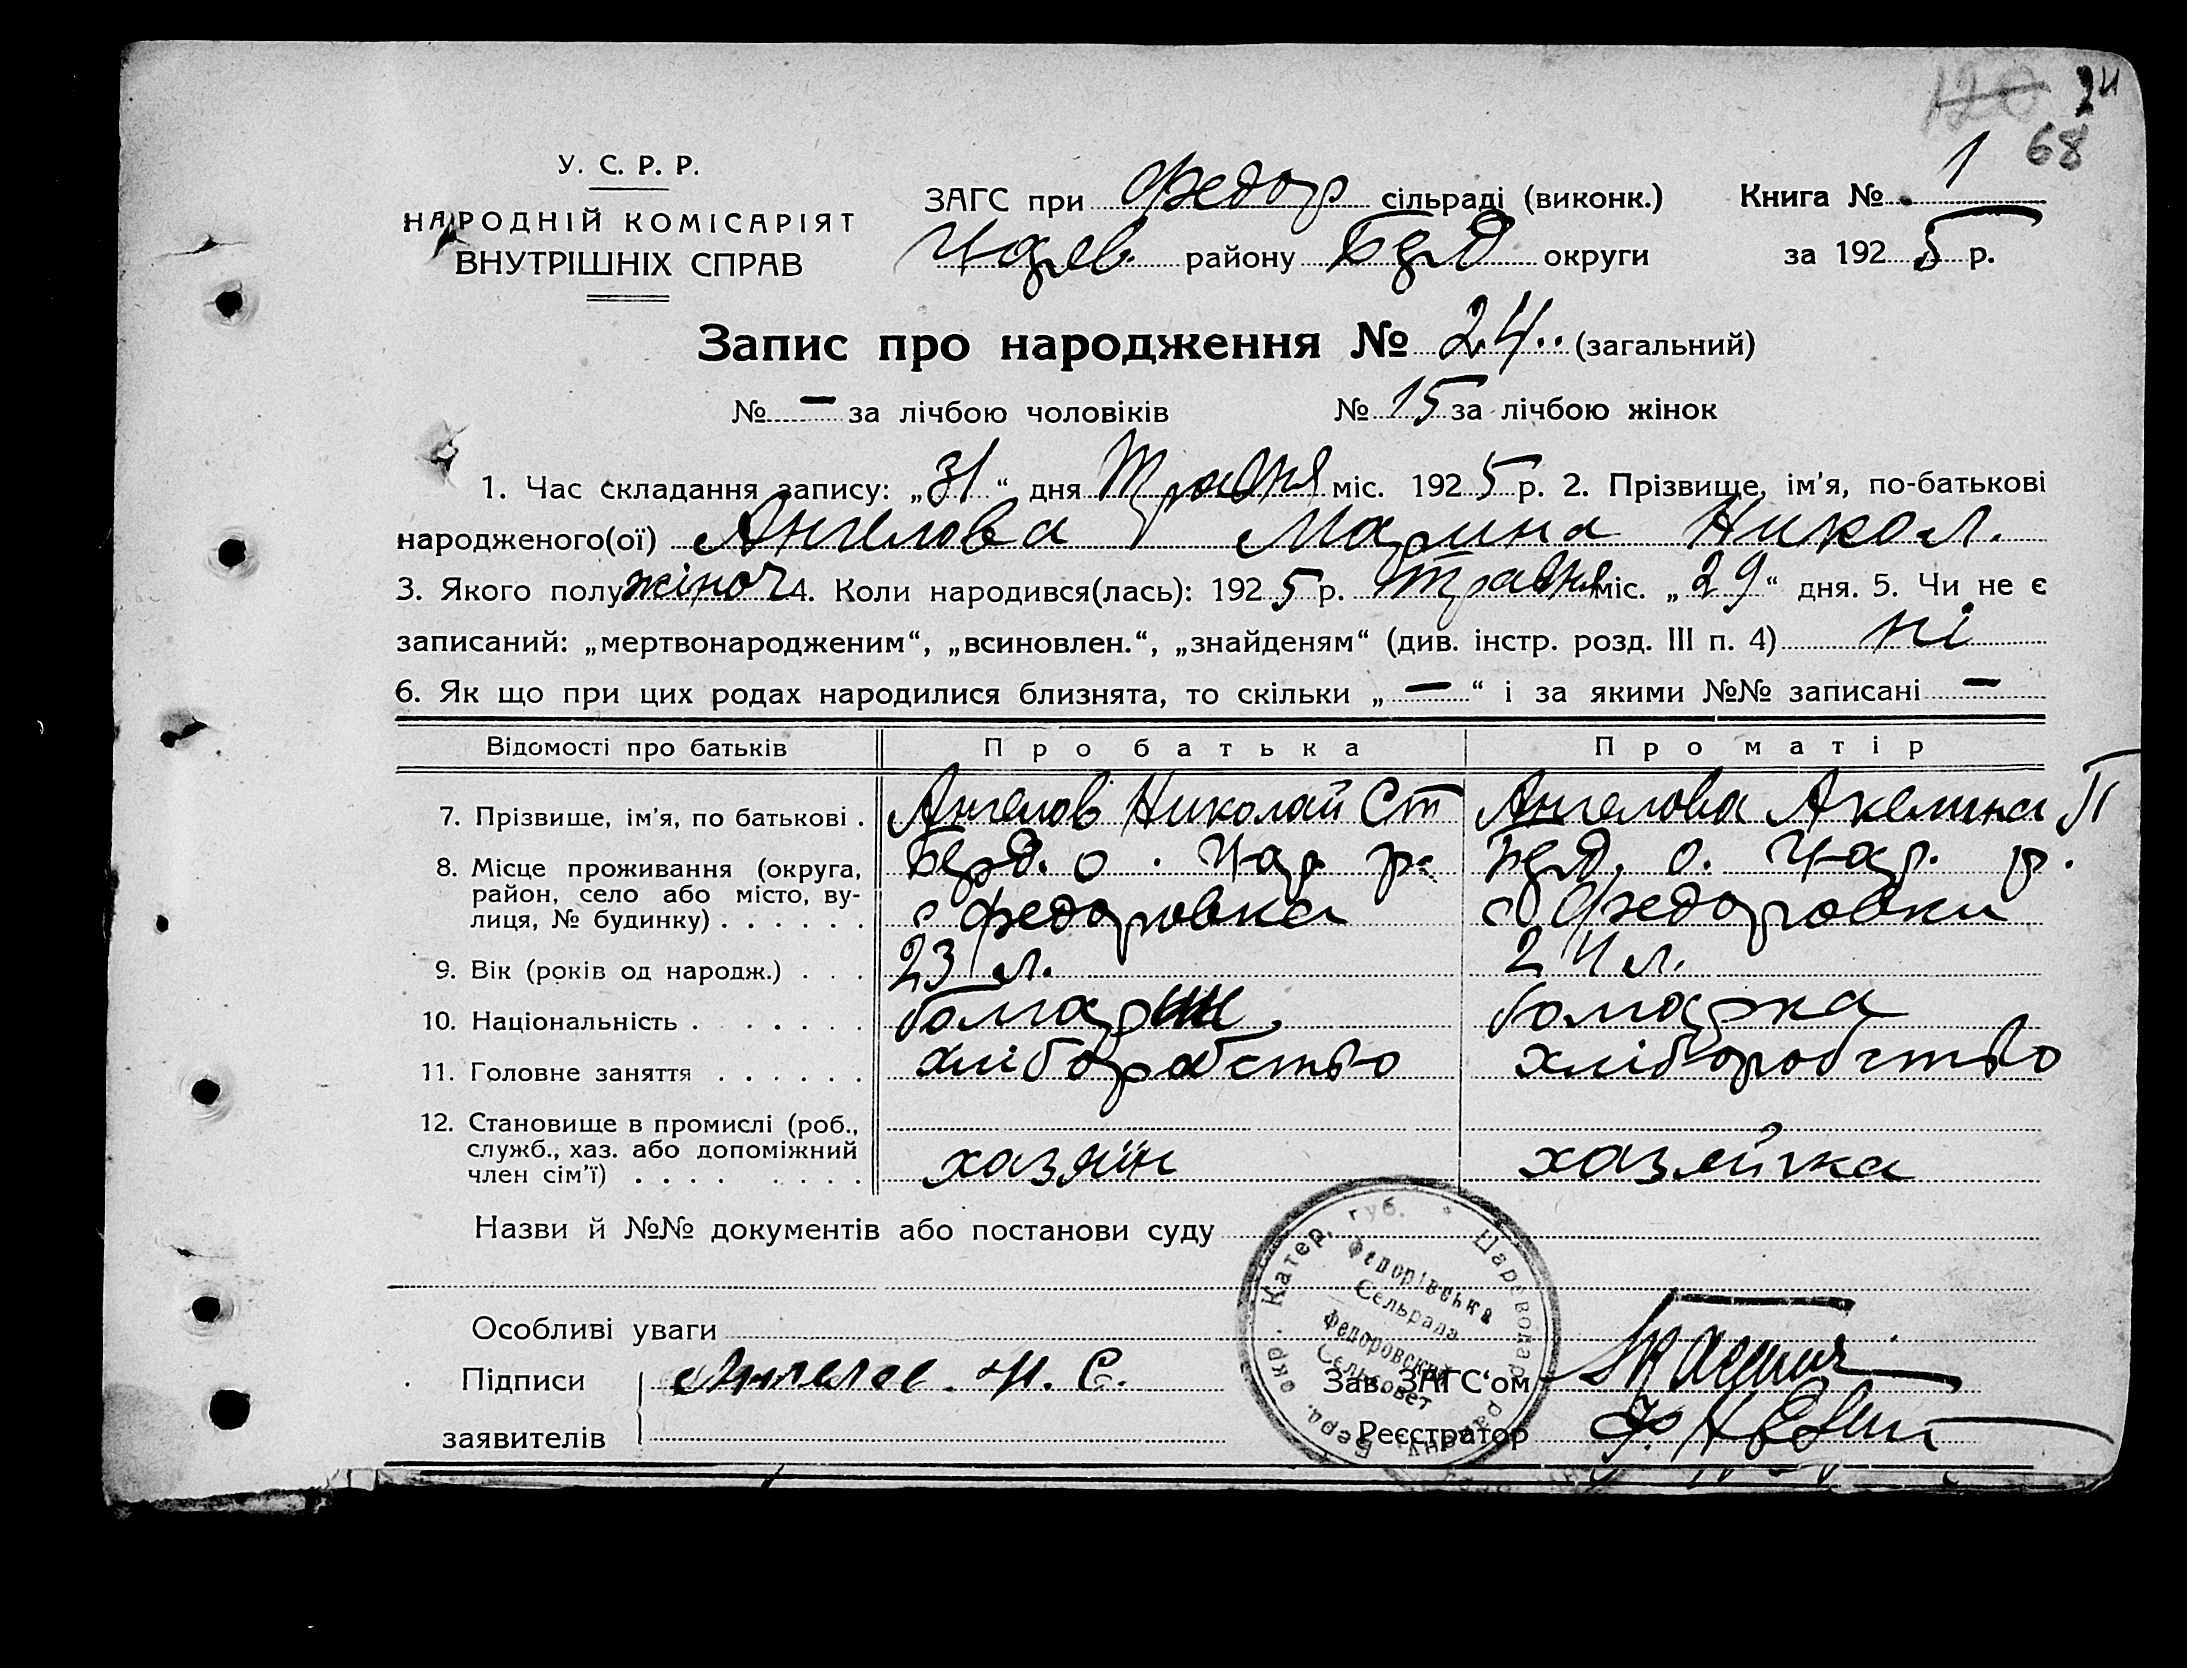 120 24
68
У. С. Р. Р.
НАРОДНІЙ КОМІСАРІЯТ
ВНУТРІШНІХ СПРАВ
ЗАГС при Федор сільраді (виконк.) Книга № 1
Царев. району Берд округи за 1925 р.
Запис про народження № 24 (загальний)
№ — за лічбою чоловіків № 15 за лічбою жінок
1. Час складання запису: „31“ дня Травня міс. 1925 р. 2. Прізвище, ім'я, по-батькові
народженого(ої) Ангелова Марина Никол.
3. Якого полу жіноч 4. Коли народився(лась): 1925 р. травня міс. „29“ дня. 5. Чи не є
записаний: „мертвонародженим“, „всиновлен.“, „знайденям“ (див. інстр. розд. III п. 4) ні
6. Як що при цих родах народилися близнята, то скільки „—“ і за якими №№ записані —
Відомості про батьків Про батька Про матір
7. Прізвище, ім'я, по батькові . Ангелов Николай Ст Ангелова Акелина П
8. Місце проживання (округа, Берд. о. Цар р. Берд. о. Цар. р.
район, село або місто, ву-
лиця, № будинку) . . . . . . с Федоровка с Федоровки
9. Вік (років од народж.) . . . 23 л. 24 л.
10. Національність . . . . . . . болгар болгарка
11. Головне заняття . . . . . . хліборобство хліборобство
12. Становище в промислі (роб.,
служб., хаз. або допоміжний
член сім'ї) . . . . . . . . хазяїн хазяйка
Назви й №№ документів або постанови суду
Особливі уваги
Підписи Ангелов. Н. С. Зав. ЗАГС'ом
заявителів Реєстратор
Катер. губ. * Цареводар районну Берд. окр.
Федорівська
Сельрада
Федоровский
Сельсовет